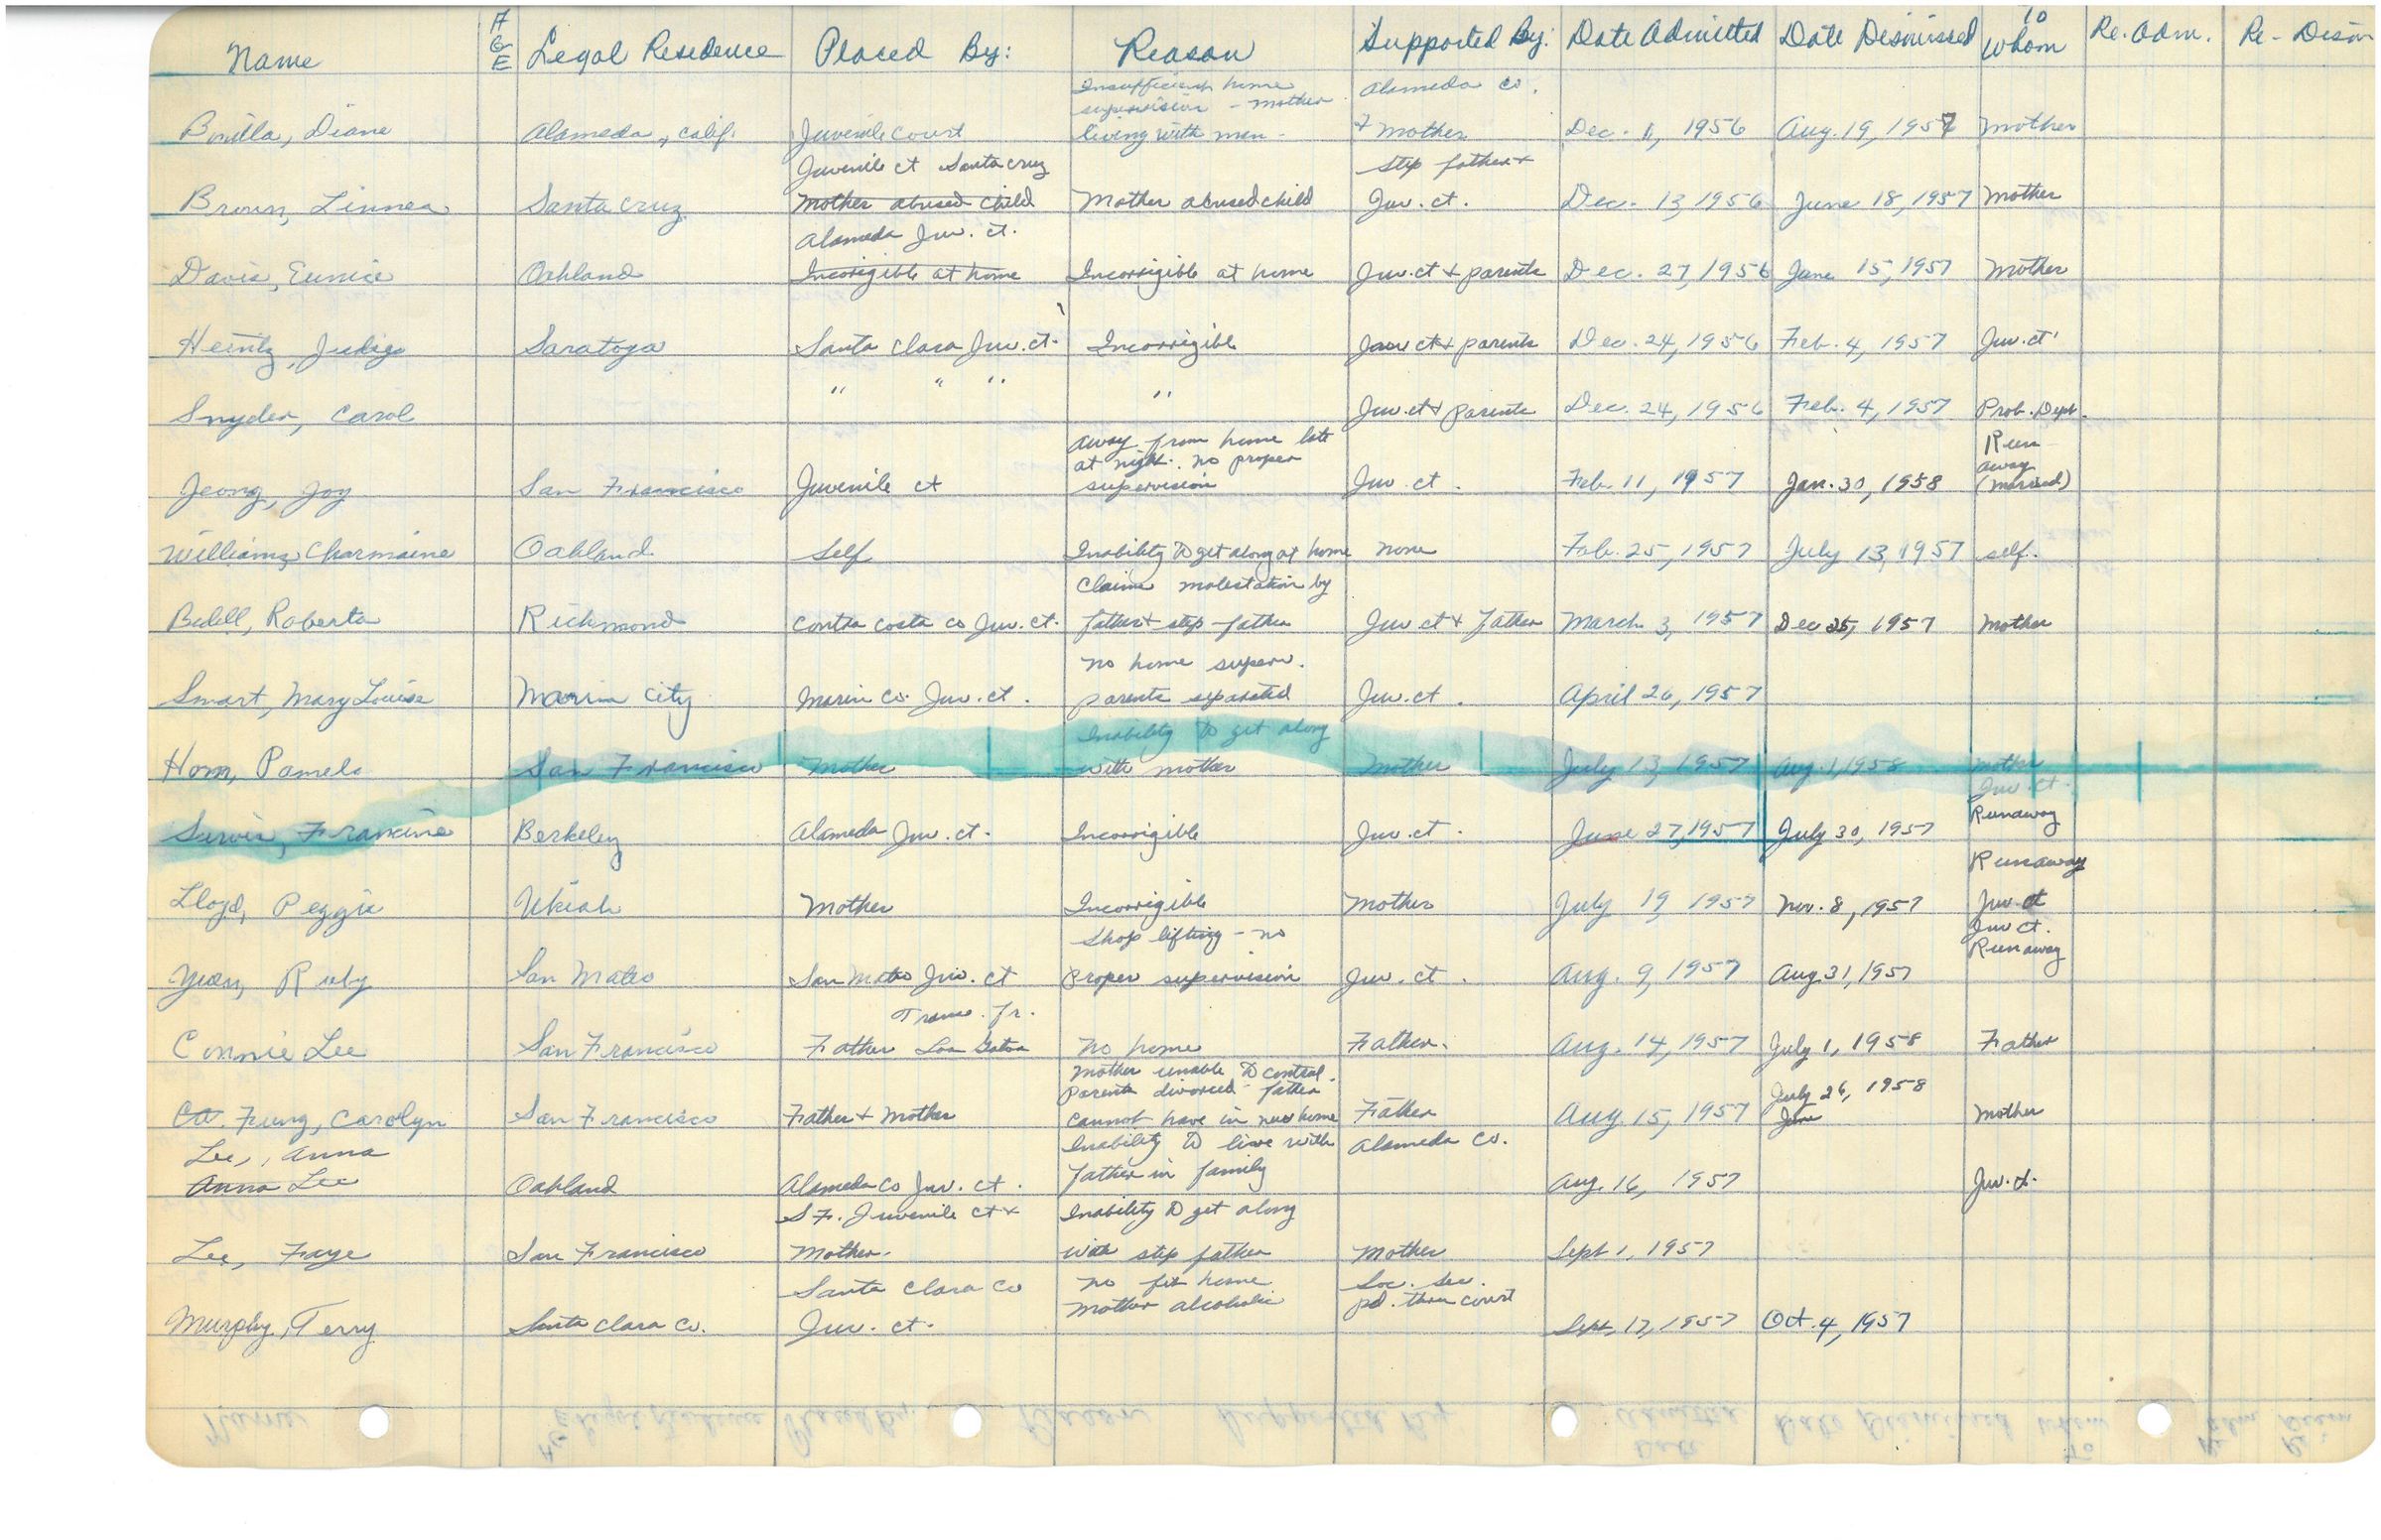 Name AGE Legal Residence Placed By: Reason Supported By: Date Admitted Date Dismissed To Whom Re. Adm. Re-Dism
Insufficient home Alameda Co.
supervision - mother
Bonilla, Diane Alameda, Calif. Juvenile Court living with man - + Mother Dec. 11, 1956 Aug. 19, 1957 Mother
Juvenile Ct Santa Cruz Step father +
Brown, Linnea Santa Cruz Mother abused child Mother abused child Juv. ct. Dec. 13, 1956 June 18, 1957 Mother
Alameda Juv. Ct.
Davis, Eunice Oakland Incorrigible at home Incorrigible at home Juv. ct + parents Dec. 27, 1956 June 15, 1957 Mother
Heintz, Saratoga Santa Clara Juv. ct. Incorrigible Juv ct + parents Dec. 24, 1956 Feb. 4, 1957 Juv. ct
" " " "
Snyder, Carol Juv. ct + Parents Dec. 24, 1956 Feb. 4, 1957 Prob. Dept.
away from home late Run
at night. no proper away
Jeong, Joy San Francisco Juvenile ct supervision Juv. ct. Feb. 11, 1957 Jan. 30, 1958 (married)
Williams, Charmaine Oakland Self Inability to get along at home none Feb. 25, 1957 July 13, 1957 self.
Claims molestation by
Bedell, Roberta Richmond Contra Costa Co Juv. ct. father + step-father Juv ct + Father March 3, 1957 Dec 25, 1957 Mother
No home superv.
Smart, Mary Louise Marin City Marin Co. Juv. ct. parents separated Juv. ct. April 26, 1957
Inability to get along
Hom, Pamela San Francisco Mother with mother Mother July 13, 1957 Aug. 1, 1958 mother
Juv. ct.
Francine Berkeley Alameda Juv. ct. Incorrigible Juv. ct. June 27, 1957 July 30, 1957 Runaway
Runaway
Lloyd, Peggie Ukiah Mother Incorrigible Mother July 19, 1957 Nov. 8, 1957 Juv. ct
Shop lifting - no Juv ct.
Ruby San Mateo San Mateo Juv. ct Proper supervision Juv. ct. Aug. 9, 1957 Aug 31, 1957 Runaway
Trans. fr.
Connie Lee San Francisco Father Los Gatos No home Father. Aug. 14, 1957 July 1, 1958 Father
Mother unable to control.
Parents divorced - father July 26, 1958
Fung, Carolyn San Francisco Father + Mother cannot have in new home Father Aug. 15, 1957 Mother
Lee, Anna Inability to live with Alameda Co.
Anna Lee Oakland Alameda Co Juv. ct. father in family Aug. 16, 1957 Juv. ct.
S.F. Juvenile ct + Inability to get along
Lee, Faye San Francisco Mother. with step father Mother Sept 1, 1957
Santa Clara Co No fit home Soc. Sec.
Mother alcoholic pd. thru court
Murphy, Terry Santa Clara Co. Juv. ct. Sept. 17, 1957 Oct. 4, 1957